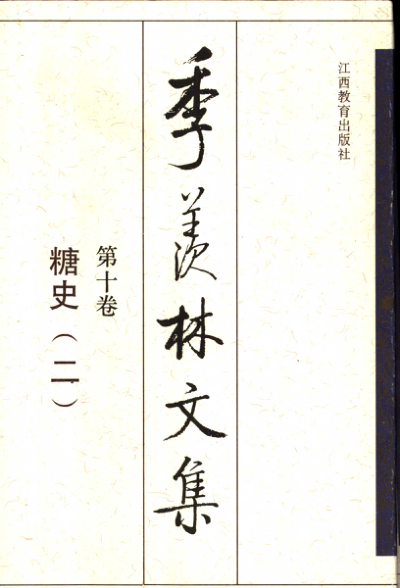 江西教育出版社
季羡林文集
第十卷
糖史（二）